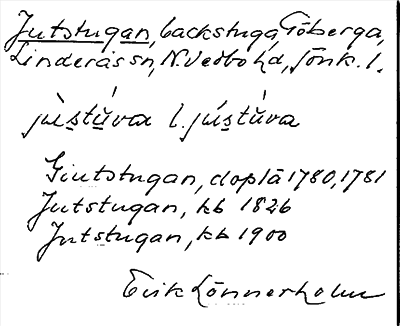 Jutstugan, backstuga, Göberga,
Linderås sn, N. Vedbo hd, Jönk. l.
jùstŭ́va l. jústŭ̀va
Giutstugan, doplä 1780, 1781
Jutstugan, kb 1826
Jutstugan, kb 1900
Erik Lönnerholm